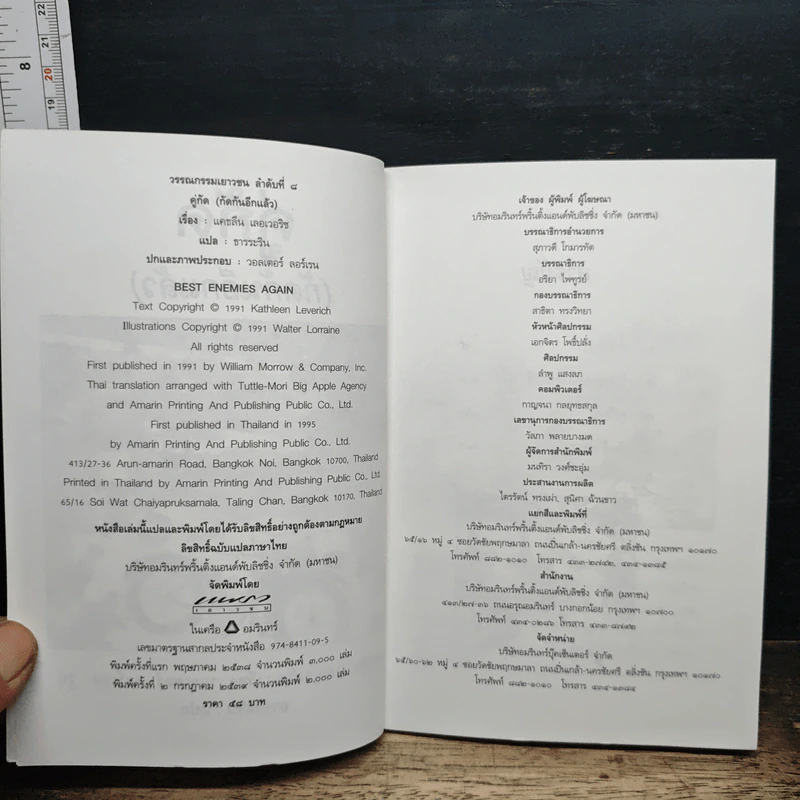 วรรณกรรมเยาวชน ลำดับที่ ๘
คู่กัด (กัดกันอีกแล้ว)
เรื่อง : แคธลีน เลอเวอริช
แปล : ธารระริน
ปกและภาพประกอบ : วอลเตอร์ ลอร์เรน
BEST ENEMIES AGAIN
Text Copyright © 1991 Kathleen Leverich
Illustrations Copyright © 1991 Walter Lorraine
All rights reserved
First published in 1991 by William Morrow & Company, Inc.
Thai translation arranged with Tuttle-Mori Big Apple Agency
and Amarin Printing And Publishing Public Co., Ltd.
First published in Thailand in 1995
by Amarin Printing And Publishing Public Co., Ltd.
413/27-36 Arun-amarin Road, Bangkok Noi, Bangkok 10700, Thailand
Printed in Thailand by Amarin Printing And Publishing Public Co., Ltd.
65/16 Soi Wat Chaiyapruksamala, Taling Chan, Bangkok 10170, Thailand
หนังสือเล่มนี้แปลและพิมพ์โดยได้รับลิขสิทธิ์อย่างถูกต้องตามกฎหมาย
ลิขสิทธิ์ฉบับแปลภาษาไทย
บริษัทอมรินทร์พริ้นติ้งแอนด์พับลิชชิ่ง จำกัด (มหาชน)
จัดพิมพ์โดย
แพรว
เยาวชน
ในเครือ อมรินทร์
เลขมาตรฐานสากลประจำหนังสือ 974-8411-09-5
พิมพ์ครั้งที่แรก พฤษภาคม ๒๕๓๘ จำนวนพิมพ์ ๓,๐๐๐ เล่ม
พิมพ์ครั้งที่ ๒ กรกฎาคม ๒๕๓๙ จำนวนพิมพ์ ๒,๐๐๐ เล่ม
ราคา ๔๘ บาท
เจ้าของ ผู้พิมพ์ ผู้โฆษณา
บริษัทอมรินทร์พริ้นติ้งแอนด์พับลิชชิ่ง จำกัด (มหาชน)
บรรณาธิการอำนวยการ
สุภาวดี โกมารทัต
บรรณาธิการ
อริยา ไพฑูรย์
กองบรรณาธิการ
สาธิตา ทรงวิทยา
หัวหน้าศิลปกรรม
เอกจิตร โพธิ์ปลั่ง
ศิลปกรรม
ลำพู แสงลภ
คอมพิวเตอร์
กาญจนา กลยุทธสกุล
เลขานุการกองบรรณาธิการ
วัลภา พลายบางมด
ผู้จัดการสำนักพิมพ์
มนทิรา วงศ์ชะอุ่ม
ประสานงานการผลิต
ไตรรัตน์ ทรงเผ่า, สุนิศา ฉ้วนขาว
แยกสีและพิมพ์ที่
บริษัทอมรินทร์พริ้นติ้งแอนด์พับลิชชิ่ง จำกัด (มหาชน)
๖๕/๑๖ หมู่ ๔ ซอยวัดชัยพฤกษมาลา ถนนปิ่นเกล้า-นครชัยศรี ตลิ่งชัน กรุงเทพฯ ๑๐๑๗๐
โทรศัพท์ ๘๘๒-๑๐๑๐ โทรสาร ๔๓๓-๒๗๔๒, ๔๓๔-๑๓๘๕
สำนักงาน
บริษัทอมรินทร์พริ้นติ้งแอนด์พับลิชชิ่ง จำกัด (มหาชน)
๔๑๓/๒๗-๓๖ ถนนอรุณอมรินทร์ บางกอกน้อย กรุงเทพฯ ๑๐๗๐๐
โทรศัพท์ ๔๓๔-๐๒๘๖ โทรสาร ๔๓๓-๘๗๙๒
จัดจำหน่าย
บริษัทอมรินทร์บุ๊คเซ็นเตอร์ จำกัด
๖๕/๖๐-๖๒ หมู่ ๔ ซอยวัดชัยพฤกษมาลา ถนนปิ่นเกล้า-นครชัยศรี ตลิ่งชัน กรุงเทพฯ ๑๐๑๗๐
โทรศัพท์ ๘๘๒-๑๐๑๐ โทรสาร ๔๓๔-๑๓๘๔
8
22
21
20
19